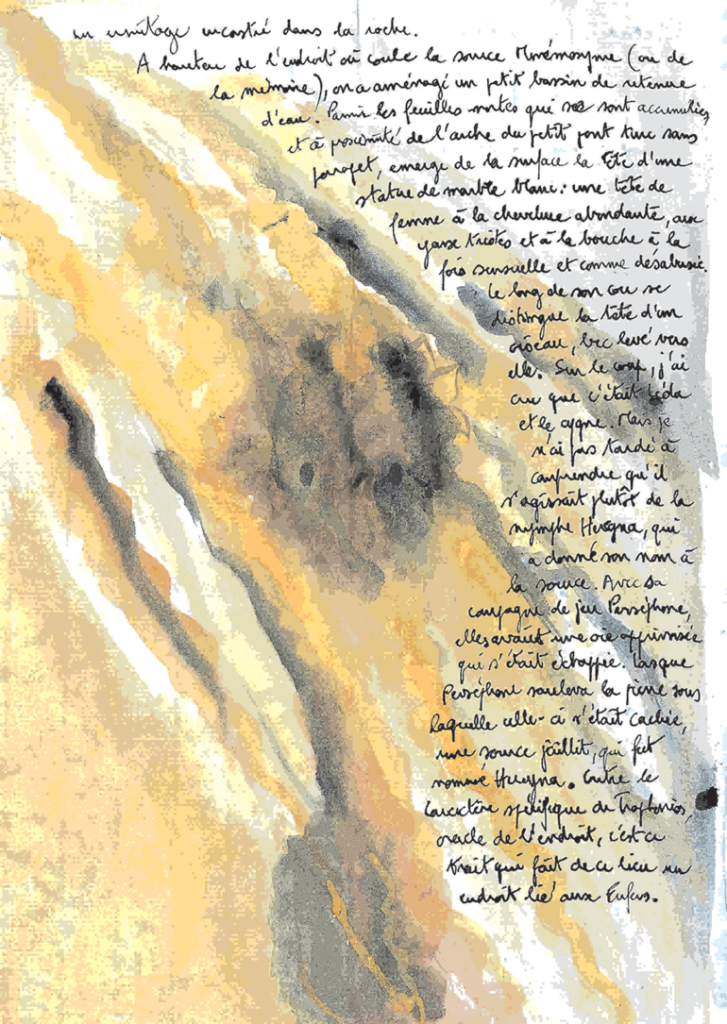 un ermitage encastré dans la roche.
A hauteur de l'endroit où coule la source Mnémosyme (ou de
la mémoire), on a aménagé un petit bassin de retenue
d'eau. Parmi les feuilles mortes qui se sont accumulées
et à proximité de l'arche du petit pont turc sans
parapet, emerge de la surface la tête d'une
statue de marbre blanc : une tête de
femme à la chevelure abondante, aux
yeux tristes et à la bouche à la
fois sensuelle et comme désabusée.
Le long de son cou se
distingue la tête d'un
oiseau, bec levé vers
elle. Sur le coup, j'ai
cru que c'était Léda
et le cygne. Mais je
n'ai pas tardé à
comprendre qu'il
s'agissait plutôt de la
nymphe Hercyna, qui
a donné son nom à
la source. Avec sa
compagne de jeu Perséphone,
elles avaient une oie apprivoisée
qui s'était échappée. Lorsque
Perséphone souleva la pierre sous
laquelle celle-ci s'était cachée,
une source jaillit, qui fut
nommée Hercyna. Outre le
caractère spécifique du Trophonios,
oracle de l'endroit, c'est ce
trait qui fait de ce lieu un
endroit lié aux Enfers.